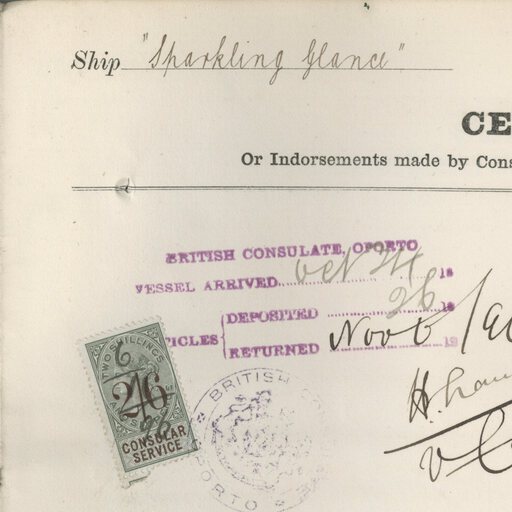 Ship "Sparkling Glance"
CE
Or Indorsements made by Cons
BRITISH CONSULATE, OPORTO
VESSEL ARRIVED Oct 24 18
DEPOSITED 26 18
TICLES
RETURNED Nov 6 18
TWO SHILLINGS
6
2/6
CONSULAR
SERVICE
BRITISH
PORTO